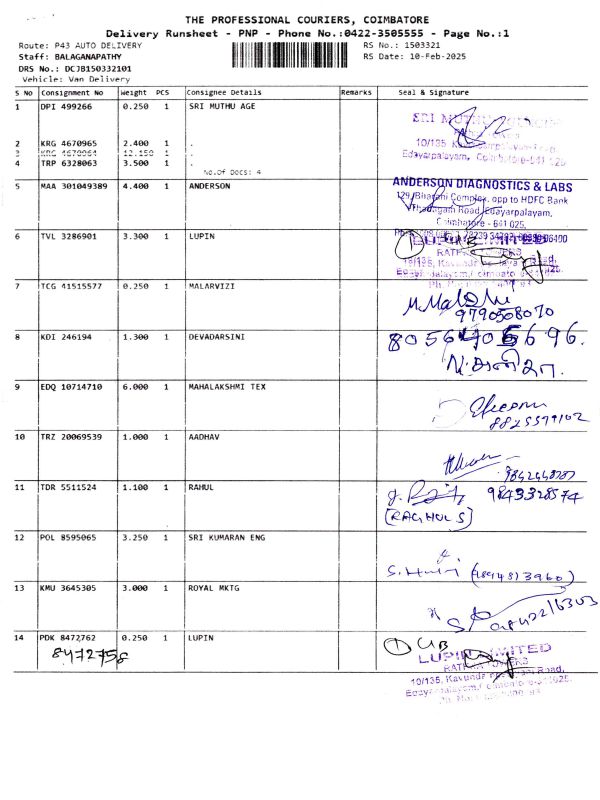 THE PROFESSIONAL COURIERS, COIMBATORE
Delivery Runsheet - PNP - Phone No.:0422-3505555 - Page No.:1
Route: P43 AUTO DELIVERY RS No.: 1503321
Staff: BALAGANAPATHY RS Date: 10-Feb-2025
DRS No.: DCJB150332101
Vehicle: Van Delivery
S No Consignment No Weight PCS Consignee Details Remarks Seal & Signature
1 DPI 499266 0.250 1 SRI MUTHU AGE
SRI MUTHU
2 KRG 4670965 2.400 1 .
10/135
3 KRG 4670964 12.150 1 .
Edayarpalayam,
4 TRP 6328063 3.500 1 .
No.Of Docs: 4
5 MAA 301049389 4.400 1 ANDERSON
ANDERSON DIAGNOSTICS & LABS
129/Bharani Complex, opp to HDFC Bank
Thadagam Road, Edayarpalayam,
Coimbatore - 641 025.
6 TVL 3286901 3.300 1 LUPIN
1 LUPIN LIMITED
10/135,
7 TCG 41515577 0.250 1 MALARVIZI
9790508070
8 KDI 246194 1.300 1 DEVADARSINI
9 EDQ 10714710 6.000 1 MAHALAKSHMI TEX
10 TRZ 20069539 1.000 1 AADHAV
11 TDR 5511524 1.100 1 RAHUL
9843328574
(RAGHUL S)
12 POL 8595065 3.250 1 SRI KUMARAN ENG
(9894813960)
13 KMU 3645305 3.000 1 ROYAL MKTG
14 PDK 8472762 0.250 1 LUPIN
8472758
1 LUPIN LIMITED
RATHNA TOWERS
10/135, Road,